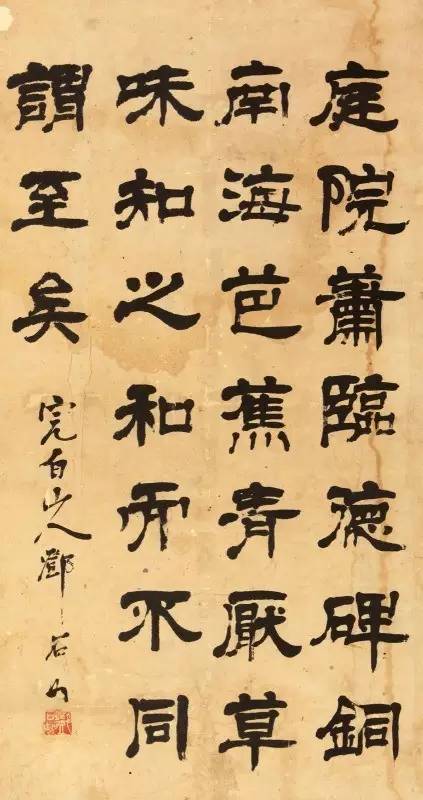 庭院蕭臨德碑銅
南海芭蕉清厭草
味知之和而不同
謂至矣
完白山人鄧石如